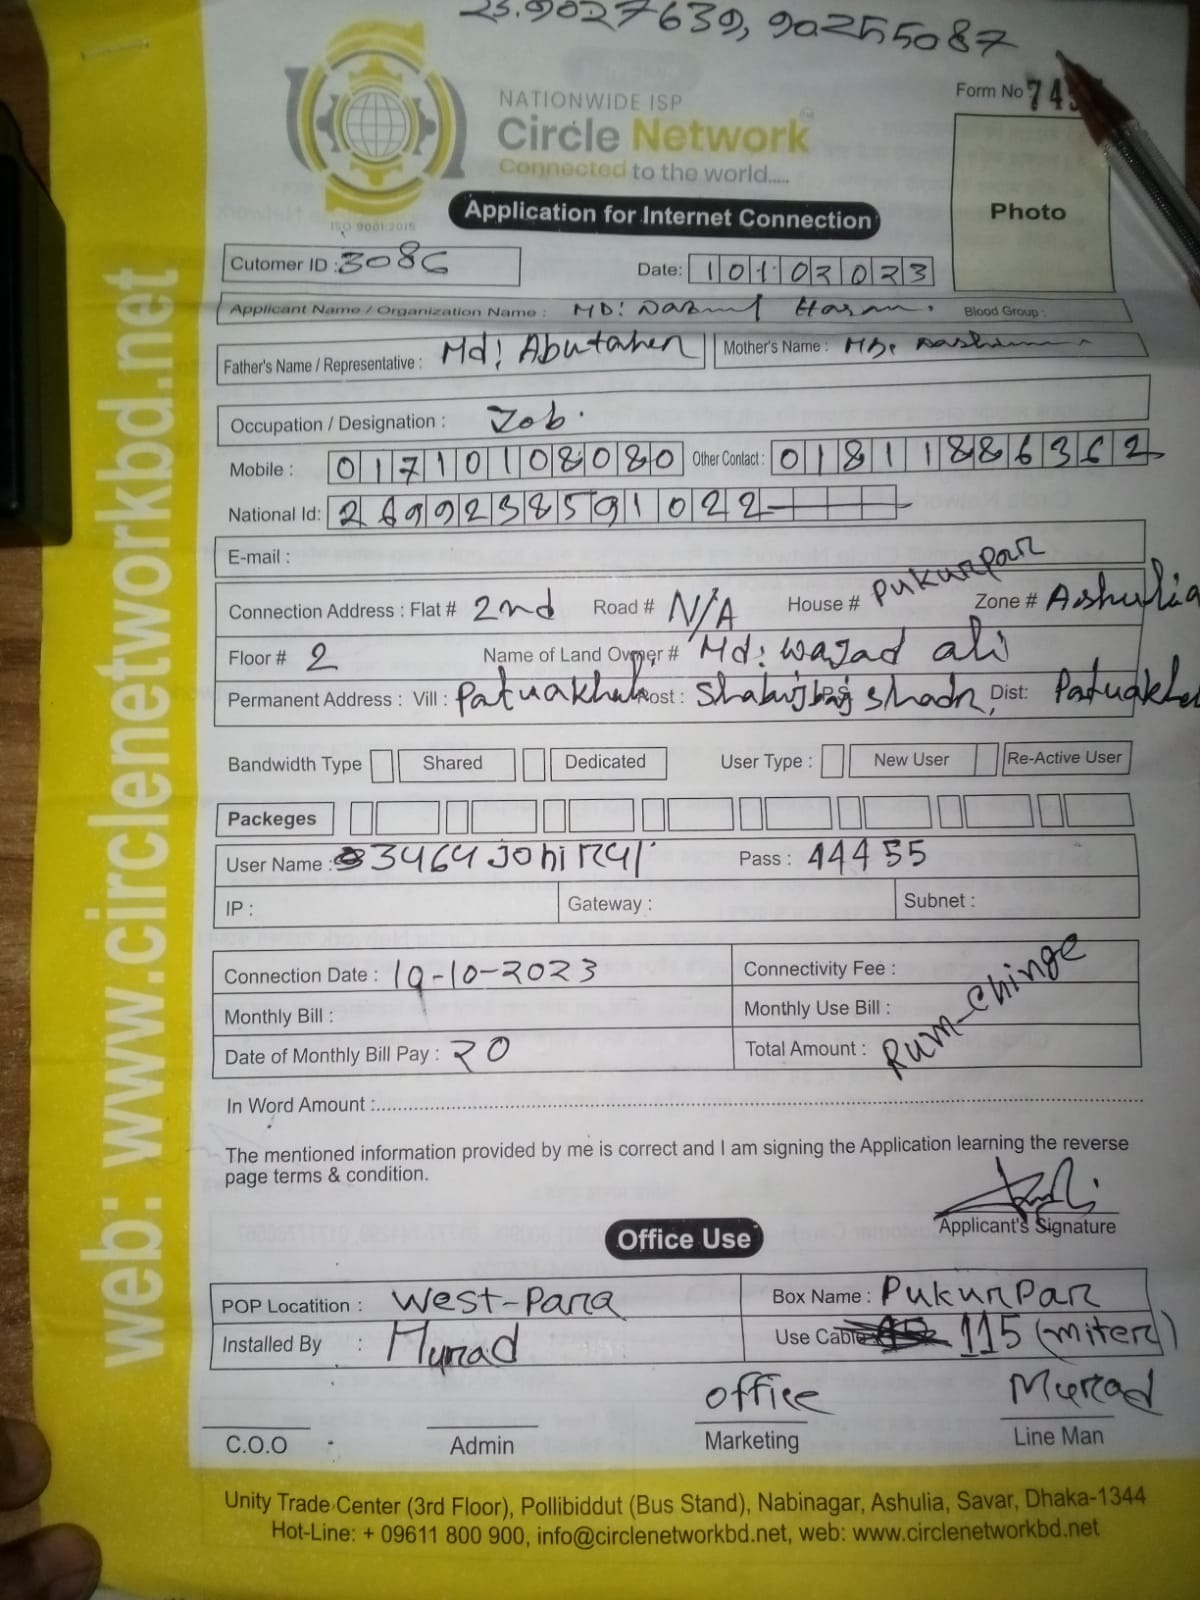 23.9027639, 90255087
Form No 74
NATIONWIDE ISP
Circle Network
Connected to the world.....
ISO 9001:2015
Application for Internet Connection
Photo
Cutomer ID : 3086 Date: 10102023
Applicant Name / Organization Name : MD: Nazmul Hasan. Blood Group :
Father's Name / Representative : Md: Abutaher Mother's Name :
Occupation / Designation : Job.
Mobile : 01710108080 Other Contact : 01811886362
National Id: 2699238591022
E-mail :
Connection Address : Flat # 2nd Road # N/A House # Pukurpar Zone # Ashulia
Floor # 2 Name of Land Owner # Md: wajad ali
Permanent Address : Vill : Patuakhali Post : Dist: Patuakhal
Bandwidth Type Shared Dedicated User Type : New User Re-Active User
Packeges
User Name : 3464 Pass : 44455
IP : Gateway : Subnet :
Connection Date : 19-10-2023 Connectivity Fee :
Monthly Bill : Monthly Use Bill :
Date of Monthly Bill Pay : 20 Total Amount : Rum-Chinge
In Word Amount :
The mentioned information provided by me is correct and I am signing the Application learning the reverse
page terms & condition.
Applicant's Signature
Office Use
POP Locatition : West-Para Box Name : Pukurpar
Installed By : Murad Use Cable 115 (miter)
office Murad
C.O.O Admin Marketing Line Man
Unity Trade Center (3rd Floor), Pollibiddut (Bus Stand), Nabinagar, Ashulia, Savar, Dhaka-1344
Hot-Line: + 09611 800 900, info@circlenetworkbd.net, web: www.circlenetworkbd.net
web: www.circlenetworkbd.net